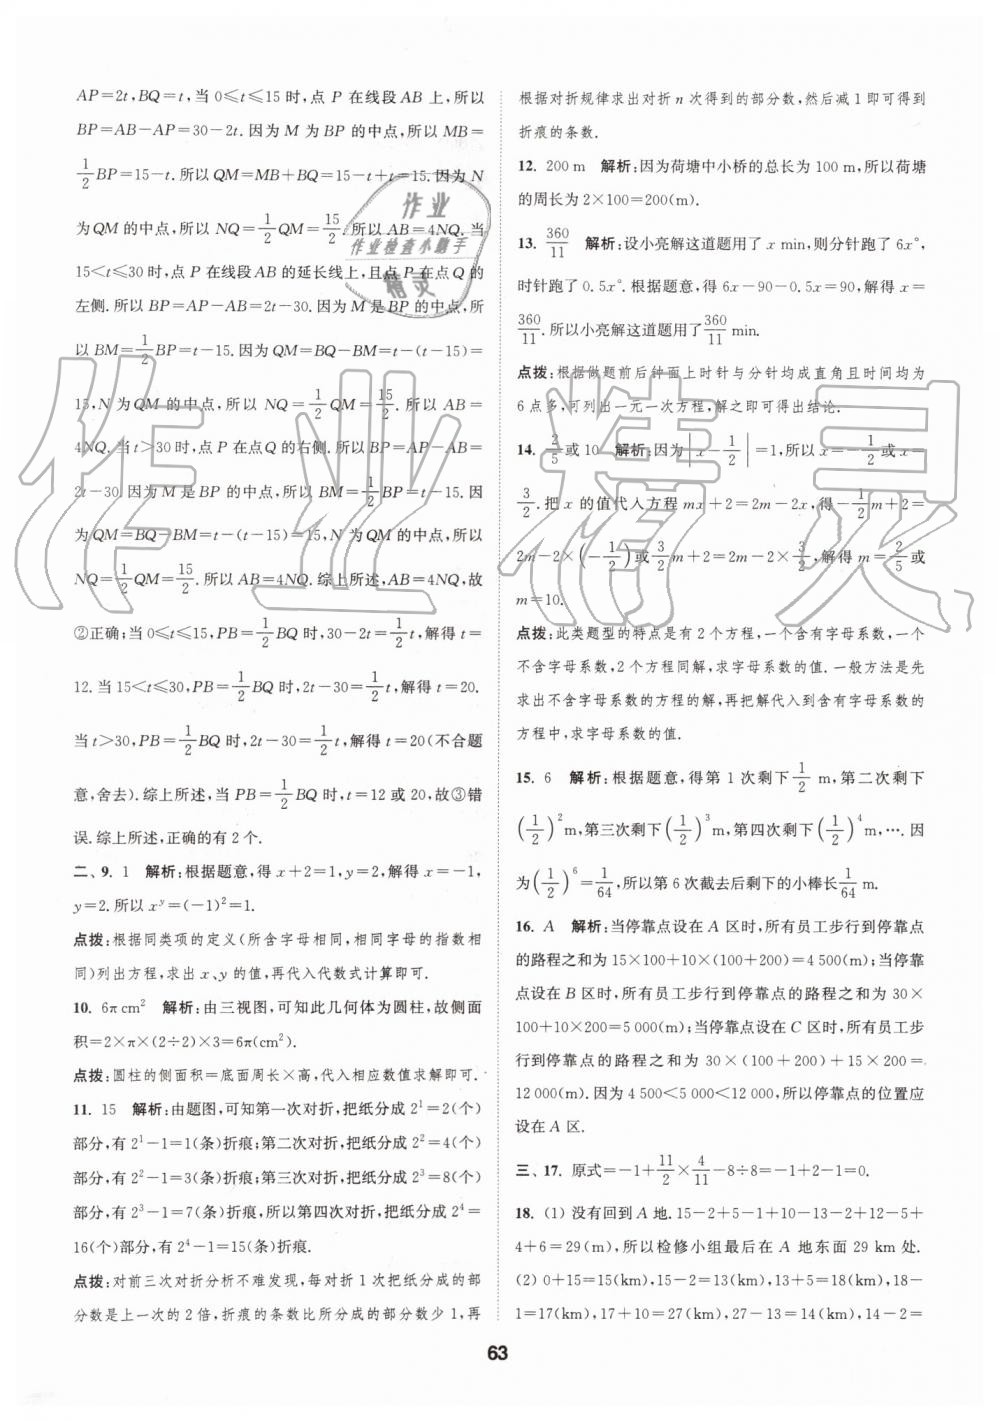 AP=2t,BQ=t,当 0≤t≤15 时,点 P 在线段 AB 上,所以
BP=AB-AP=30-2t.因为 M 为 BP 的中点,所以 MB=
1/2 BP=15-t.所以 QM=MB+BQ=15-t+t=15.因为 N
为 QM 的中点,所以 NQ=1/2 QM=15/2.所以 AB=4NQ.当
15<t≤30 时,点 P 在线段 AB 的延长线上,且点 P 在点 Q 的
左侧.所以 BP=AP-AB=2t-30.因为 M 是 BP 的中点,所
以 BM=1/2 BP=t-15.因为 QM=BQ-BM=t-(t-15)=
15,N 为 QM 的中点,所以 NQ=1/2 QM=15/2.所以 AB=
4NQ.当 t>30 时,点 P 在点 Q 的右侧.所以 BP=AP-AB=
2t-30.因为 M 是 BP 的中点,所以 BM=1/2 BP=t-15.因
为 QM=BQ-BM=t-(t-15)=15,N 为 QM 的中点,所以
NQ=1/2 QM=15/2.所以 AB=4NQ.综上所述,AB=4NQ,故
②正确;当 0≤t≤15,PB=1/2 BQ 时,30-2t=1/2 t,解得 t=
12.当 15<t≤30,PB=1/2 BQ 时,2t-30=1/2 t,解得 t=20.
当 t>30,PB=1/2 BQ 时,2t-30=1/2 t,解得 t=20(不合题
意,舍去).综上所述,当 PB=1/2 BQ 时,t=12 或 20,故③错
误.综上所述,正确的有 2 个.
二、9. 1 解析:根据题意,得 x+2=1,y=2.解得 x=-1,
y=2.所以 x^y=(-1)²=1.
点拨:根据同类项的定义(所含字母相同,相同字母的指数相
同)列出方程,求出 x、y 的值,再代入代数式计算即可.
10. 6π cm² 解析:由三视图,可知此几何体为圆柱,故侧面
积=2×π×(2÷2)×3=6π(cm²).
点拨:圆柱的侧面积=底面周长×高,代入相应数值求解即可.
11. 15 解析:由题图,可知第一次对折,把纸分成 2¹=2(个)
部分,有 2¹-1=1(条)折痕;第二次对折,把纸分成 2²=4(个)
部分,有 2²-1=3(条)折痕;第三次对折,把纸分成 2³=8(个)
部分,有 2³-1=7(条)折痕,所以第四次对折,把纸分成 2⁴=
16(个)部分,有 2⁴-1=15(条)折痕.
点拨:对前三次对折分析不难发现,每对折 1 次把纸分成的部
分数是上一次的 2 倍,折痕的条数比所分成的部分数少 1,再
根据对折规律求出对折 n 次得到的部分数,然后减 1 即可得到
折痕的条数.
12. 200 m 解析:因为荷塘中小桥的总长为 100 m,所以荷塘
的周长为 2×100=200(m).
13. 360/11 解析:设小亮解这道题用了 x min,则分针跑了 6x°,
时针跑了 0.5x°.根据题意,得 6x-90-0.5x=90,解得 x=
360/11.所以小亮解这道题用了 360/11 min.
点拨:根据做题前后钟面上时针与分针均成直角且时间均为
6 点多,可列出一元一次方程,解之即可得出结论.
14. 2/5 或 10 解析:因为 |x-1/2|=1,所以 x=-1/2 或 x=
3/2.把 x 的值代入方程 mx+2=2m-2x,得-1/2 m+2=
2m-2×(-1/2)或 3/2 m+2=2m-2×3/2,解得 m=2/5 或
m=10.
点拨:此类题型的特点是有 2 个方程,一个含有字母系数,一个
不含字母系数,2 个方程同解,求字母系数的值.一般方法是先
求出不含字母系数的方程的解,再把解代入到含有字母系数的
方程中,求字母系数的值.
15. 6 解析:根据题意,得第 1 次剩下 1/2 m,第二次剩下
(1/2)² m,第三次剩下(1/2)³ m,第四次剩下(1/2)⁴ m,….因
为(1/2)⁶=1/64,所以第 6 次截去后剩下的小棒长 1/64 m.
16. A 解析:当停靠点设在 A 区时,所有员工步行到停靠点
的路程之和为 15×100+10×(100+200)=4 500(m);当停靠
点设在 B 区时,所有员工步行到停靠点的路程之和为 30×
100+10×200=5 000(m);当停靠点设在 C 区时,所有员工步
行到停靠点的路程之和为 30×(100+200)+15×200=
12 000(m).因为 4 500<5 000<12 000,所以停靠点的位置应
设在 A 区.
三、17. 原式=-1+11/2×4/11-8÷8=-1+2-1=0.
18. (1) 没有回到 A 地.15-2+5-1+10-13-2+12-5+
4+6=29(m),所以检修小组最后在 A 地东面 29 km 处.
(2) 0+15=15(km),15-2=13(km),13+5=18(km),18-
1=17(km),17+10=27(km),27-13=14(km),14-2=
63
作业
作业检查小助手
精灵
作业精灵